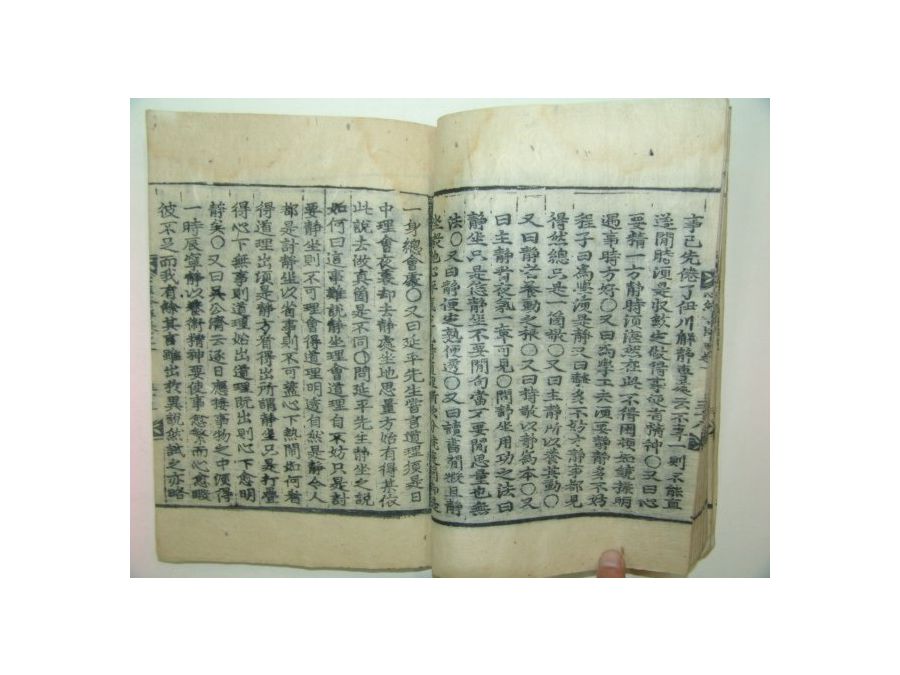 事已先倦了伊川解靜專處云不專一則不能直
遂閒時須是收斂定做得事便有精神○又曰心
要精一方靜時須湛然在此不得困頓如鏡樣明
遇事時方好○又曰爲學工夫須要靜靜多不好
程子曰爲學須是靜又曰靜多不妨才靜事都見
得然總只是一箇敬○又曰主靜所以養其動○
又曰靜者養動之根○又曰持敬以靜爲本○又
曰主靜看夜氣一章可見○問靜坐用功之法曰
靜坐只是恁靜坐不要閒勾當不要閒思量也無
法○又曰靜便定熟便透○又曰讀書閒暇且靜
坐
一身總會處○又曰延平先生嘗言道理須是日
中理會夜裏却去靜處坐地思量方始有得某依
此說去做眞箇是不同○問延平先生靜坐之說
如何曰這事難說靜坐理會道理自不妨只是討
要靜坐則不可理會得道理明透自然是靜今人
都是討靜坐以省事則不可蓋心下熱鬧如何看
得道理出須是靜方看得出所謂靜坐只是打疊
得心下無事則道理始出道理旣出則心下愈明
靜矣○又曰吳公濟云逐日應接事物之中須得
一時辰寧靜以養衛精神要使事愈繁而心愈暇
彼不足而我有餘其言雖出於異說然試之亦略